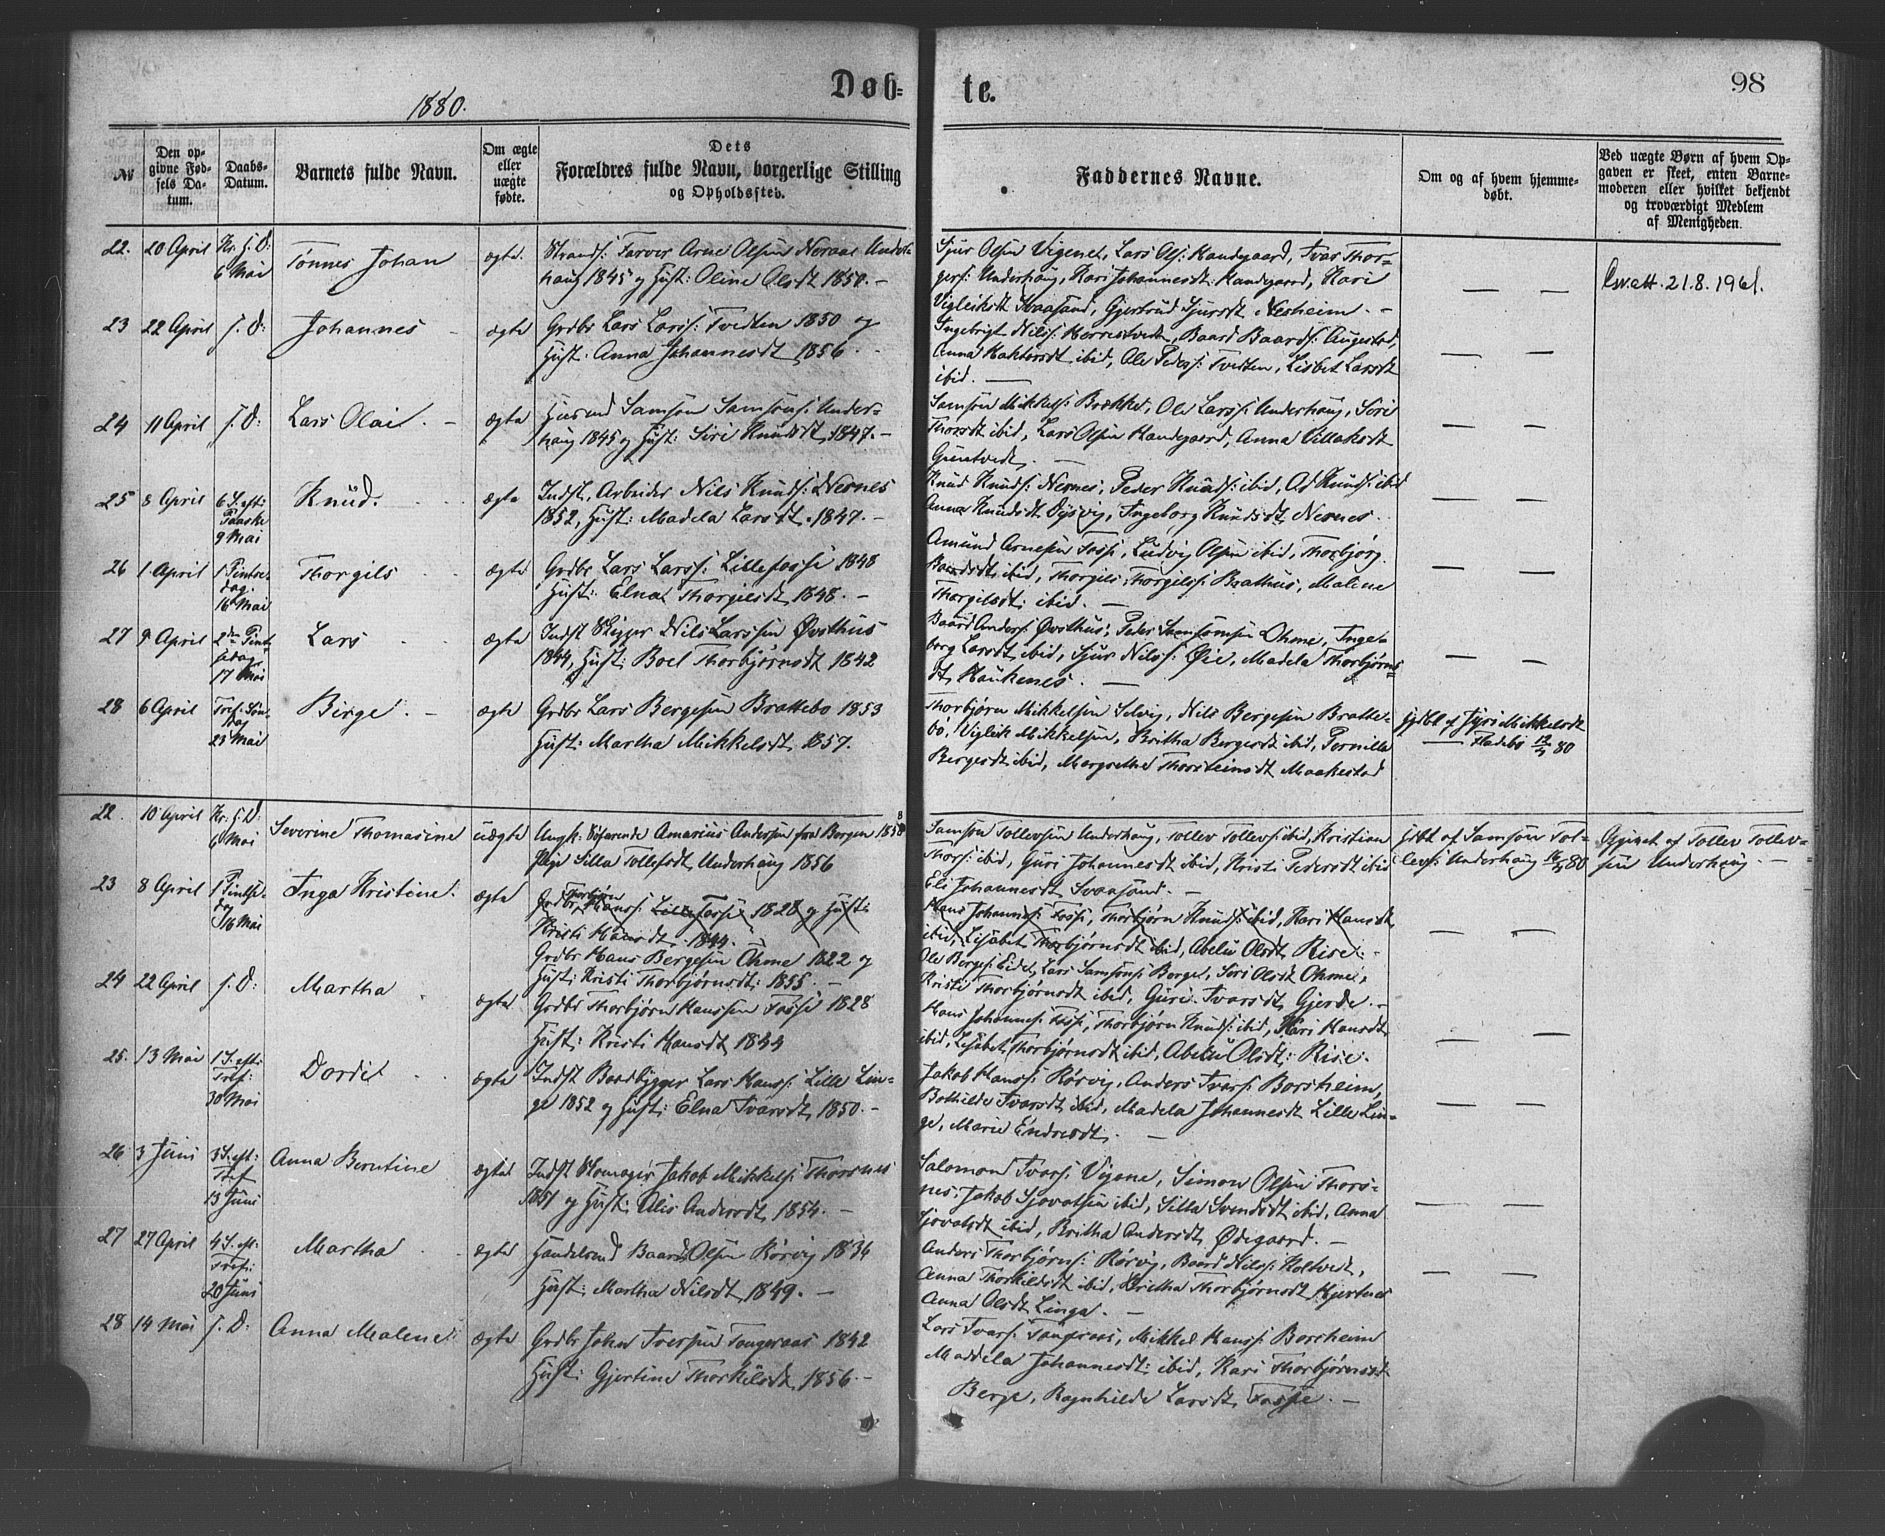 1880.
Døb-
te.
98
№
Den op-
givne Fød-
sels Da-
tum.
Daabs-
Datum.
Barnets fulde Navn.
Om ægte
eller
uægte
fødte.
Dets
Forældres fulde Navn, borgerlige Stilling
og Opholdssted.
Faddernes Navne.
Om og af hvem hjemme-
døbt.
Ved uægte Børn af hvem Op-
gaven er skeet, enten Barne-
moderen eller hvilket bekjendt
og troværdigt Medlem
af Menigheden.
22. 20 April Kr. H. D: 6 Mai
Tønnes Johan
ægte
Strands: Farver Arne Olsen Neraal Under-
haug 1845 og Hust: Oline Olsdt 1850. -
Sjur Olsen Vigenes, Lars Ols: Handegaard, Ivar Thor-
gers: Underhaug, Kari Johannesdt: Handegaard, Kari
Vigleiksdt Svaasand, Gjertrud Sjursdt Nesheim. -
— —
Attest 21.8.1961.
23 22 April S. D:
Johannes
ægte
Grdbr Lars Larss: Tvedten 1850 og
Hust: Anna Johannesdt 1856.
Ingebrigt Nilss: Herrestvedt, Baard Baards: Augestad,
Anna ibid, Ole Peders: Tvedten, Lisbet Larsdt
ibid. —
— —
24 11 April S. D:
Lars Olai. -
ægte
Husmd Samson Samsons: Under-
haug 1845 og Hust: Siri Knudsdt 1847. -
Samson Mikkels: Brække, Ole Larss: Underhaug, Siri
Thorsdt ibid, Lars Olsen Handegaard, Anna Villaksdt
—
— —
25 8 April 6 S. eft: Paaske 9 Mai
Knud.
ægte
Indst. Arbeider Nils Knuds: Nernes
1852, Hust: Madela Larsdt 1847. -
Knud Knuds: Nernes, Peder Knuds: ibid, Ol Knuds: ibid
Anna Knudsdt Dysvig, Ingeborg Knudsdt Nernes.
— —
26 1 April 1 Pintse-dag. 16 Mai
Thorgils
ægte
Grdbr Lars Larss: Lillefosse 1848
Hust: Elna Thorgilsdt 1848. -
Amund Arnesen Fosse, Ludvig Olsen ibid, Thorbjørg
Baardsdt ibid, Thorgils Thorgilss: Brathus, Malene
Thorgilsdt: ibid. —
— —
27 9 April 2den Pintsedag 17 Mai
Lars
ægte
Indst Skipper Nils Larssen Østhus
1844, Hust: Boel Thorbjørnsdt 1842
Baard Anders: Østhus, Peder Samsonsen Ohme, Inge-
borg Larsdt ibid, Sjur Nilss: Øie, Madela Thorbjørns-
dt Haukenes. —
— —
28 6 April Tref: Søn-dag 23 Mai
Birge. -
ægte
Grdbr Lars Bergesen Brattebø 1853
Hust: Martha Mikkelsdt 1857.
Thorbjørn Mikkelsen Selvig, Nils Bergesen Bratte-
bø, Vigleik Mikkelsen, Britha Bergesdt ibid, Pernille
Bergesdt ibid, Margrethe Thorsteinsdt Maakestad
hjdbt af Mikkelsdt
— Fladebø 12/4 80
22. 10 April Kr. H. D: 6 Mai
Severine Thomasine
uægte
Ungk: Søfarende Amarius Andersen fra Bergen 1858
Pige Silla Tollefsdt Underhaug 1856
Samson Tollevsen Underhaug, Tollev Tollevs: ibid, Kristian
Thors: ibid, Guri Johannesdt ibid, Kristi Pedersdt ibid
Eli Johannesdt Svaasand. -
hjdbt af Samson Tol-
levs: Underhaug 80
Opgivet af Tollev Tollev-
sen Underhaug —
23 8 April 1 Pintse-dag 16 Mai
Inga Kristine.
ægte
Grdbr Thorbjørn Hanss: Lille Fosse 1828 og Hust:
Kristi Hansdt 1844.
Grdbr Hans Bergesen Ohme 1822 og
Hust: Kristi Thorbjørnsdt: 1855. -
Hans Johanness: Fosse, Thorbjørn Knuds: ibid, Kari Hansdt
ibid, Lisabet Thorbjørnsdt ibid, Abelu Olsdt Rise.
Ole Berges: Eidet, Lars Samsons: Berget, Siri Olsdt Ohme,
Kristi Thorbjørnsdt ibid, Guri Ivarsdt Gjerde. -
— —
24 22 April S. D:
Martha
ægte
Grdbr Thorbjørn Hanssen Fosse 1828
Hust: Kristi Hansdt 1844
Hans Johanness: Fosse, Thorbjørn Knuds: ibid, Kari Hansdt
ibid, Lisabet Thorbjørnsdt ibid, Abelu Olsdt: Rise.
— —
25. 13 Mai 1 S. eft: Tref: 30 Mai
Dordei
ægte
Indst Baadbygger Lars Hanss: Lille Lin-
ge 1852 og Hust: Elna Ivarsdt 1850. -
Jakob Hanss: Rørvig, Anders Ivars: Borsheim,
Bothilde Ivarsdt ibid, Madela Johannesdt Lille Lin-
ge, Marie Endresdt. —
— —
26 3 Juni 3 S. eft: Tref 13 Juni
Anna Berntine
ægte
Indst Skomager Jakob Mikkels: Thorsnes
1851 og Hust: Alis Andersdt 1854. -
Salomon Ivars: Vigene, Simon Olsen Thors-
nes, Jakob Sjovatsen ibid, Silla Svendsdt ibid, Anna
Sjovatsdt ibid, Britha Andersdt Ødegaard. -
— —
27 27 April 4 S. eft: Tref: 20 Juni
Martha
ægte
Handelsmd Baard Olsen Rørvig 1834
Hust: Martha Nilsdt 1849. -
Anders Thorbjørns: Rørvig, Baard Nilss: Holtvedt,
Anna Thorkildsdt ibid, Britha Thorbjørnsdt Hjertnes
Anna Olsdt Linga. —
— —
28 14 Mai S. D:
Anna Malene
ægte
Grdbr John Iversen Tangeraas 1842
Hust: Gjertine Thorkilsdt 1856 -
Lars Ivars: Tangeraas, Mikkel Hanss: Borsheim
Maddela Johannesdt: ibid, Kari Thorbjørnsdt
Berge, Ragnhilde Larsdt Fosse. -